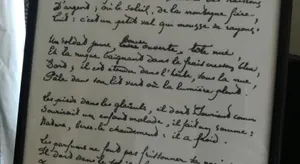 D'argent; où le soleil, de la montagne fière,
Luit: c'est un petit val qui mousse de rayons.
Un soldat jeune, bouche ouverte, tête nue
Et la nuque baignant dans le frais cresson bleu,
Dort; il est étendu dans l'herbe, sous la nue,
Pâle dans son lit vert où la lumière pleut.
Les pieds dans les glaïeuls, il dort. Souriant comme
Sourirait un enfant malade, il fait un somme:
Nature, berce-le chaudement: il a froid.
Les parfums ne font pas frissonner sa narine
Il dort dans le